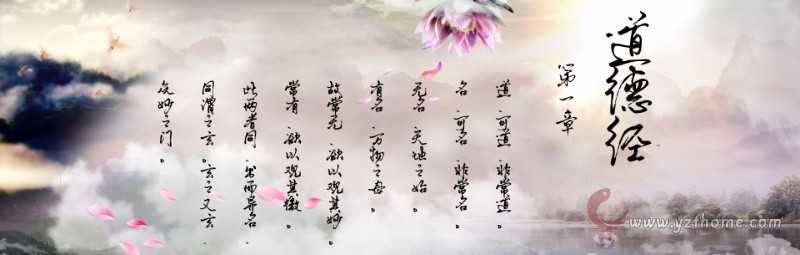 道德经
第一章
道,可道,非常道。
名,可名,非常名。
无名,天地之始。
有名,万物之母。
故常无,欲以观其妙。
常有,欲以观其徼。
此两者同,出而异名,
同谓之玄。玄之又玄,
众妙之门。
www.yzfhome.com